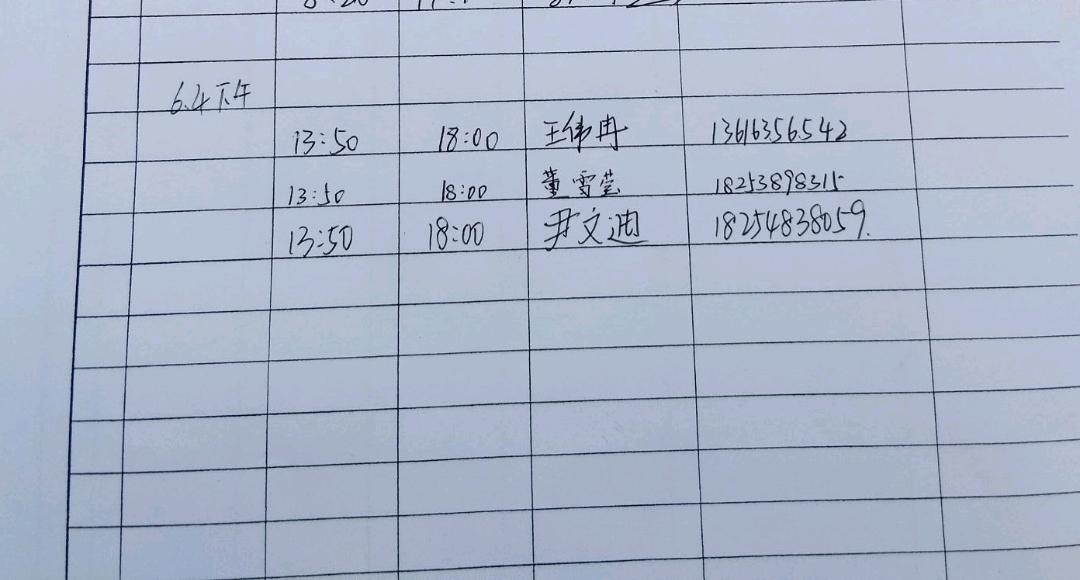 6.4下午
13:50 18:00 王伟冉 13616356542
13:50 18:00 董雪莹 18253898315
13:50 18:00 尹文迪 18254838059.